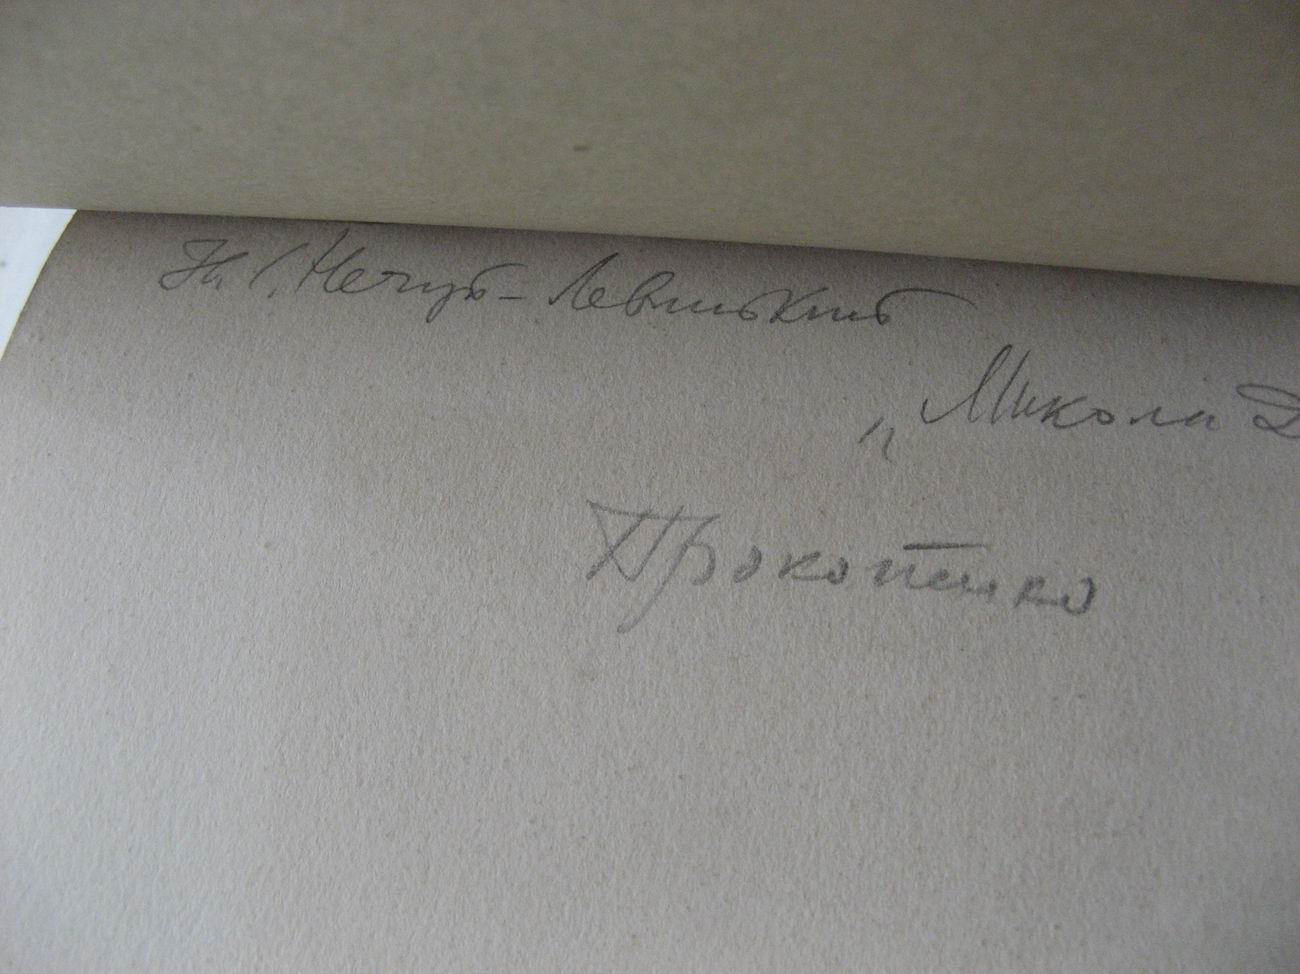 Нечуй-Левицький
„Микола Д
Прокопенко